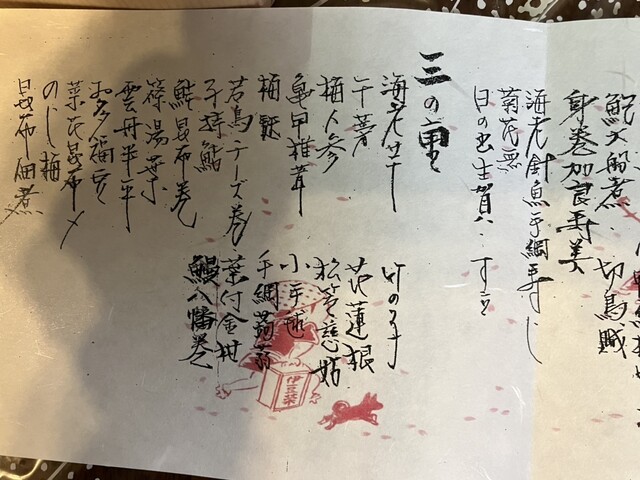 身巻加良寿美
切鳥賊
海老針魚手綱寿し
菊花蕪
日の出生賀
三の重
海老芋
竹の子
牛蒡
花蓮根
梅人参
松笠慈姑
亀甲椎茸
小手毬
梅麩
手綱蒟蒻
若鳥チーズ巻
葉付金柑
子持鮎
鰻八幡巻
鮭昆布巻
篠湯葉
雲丹半平
お多福豆
菜花昆布〆
のし梅
昆布佃煮
伊豆榮